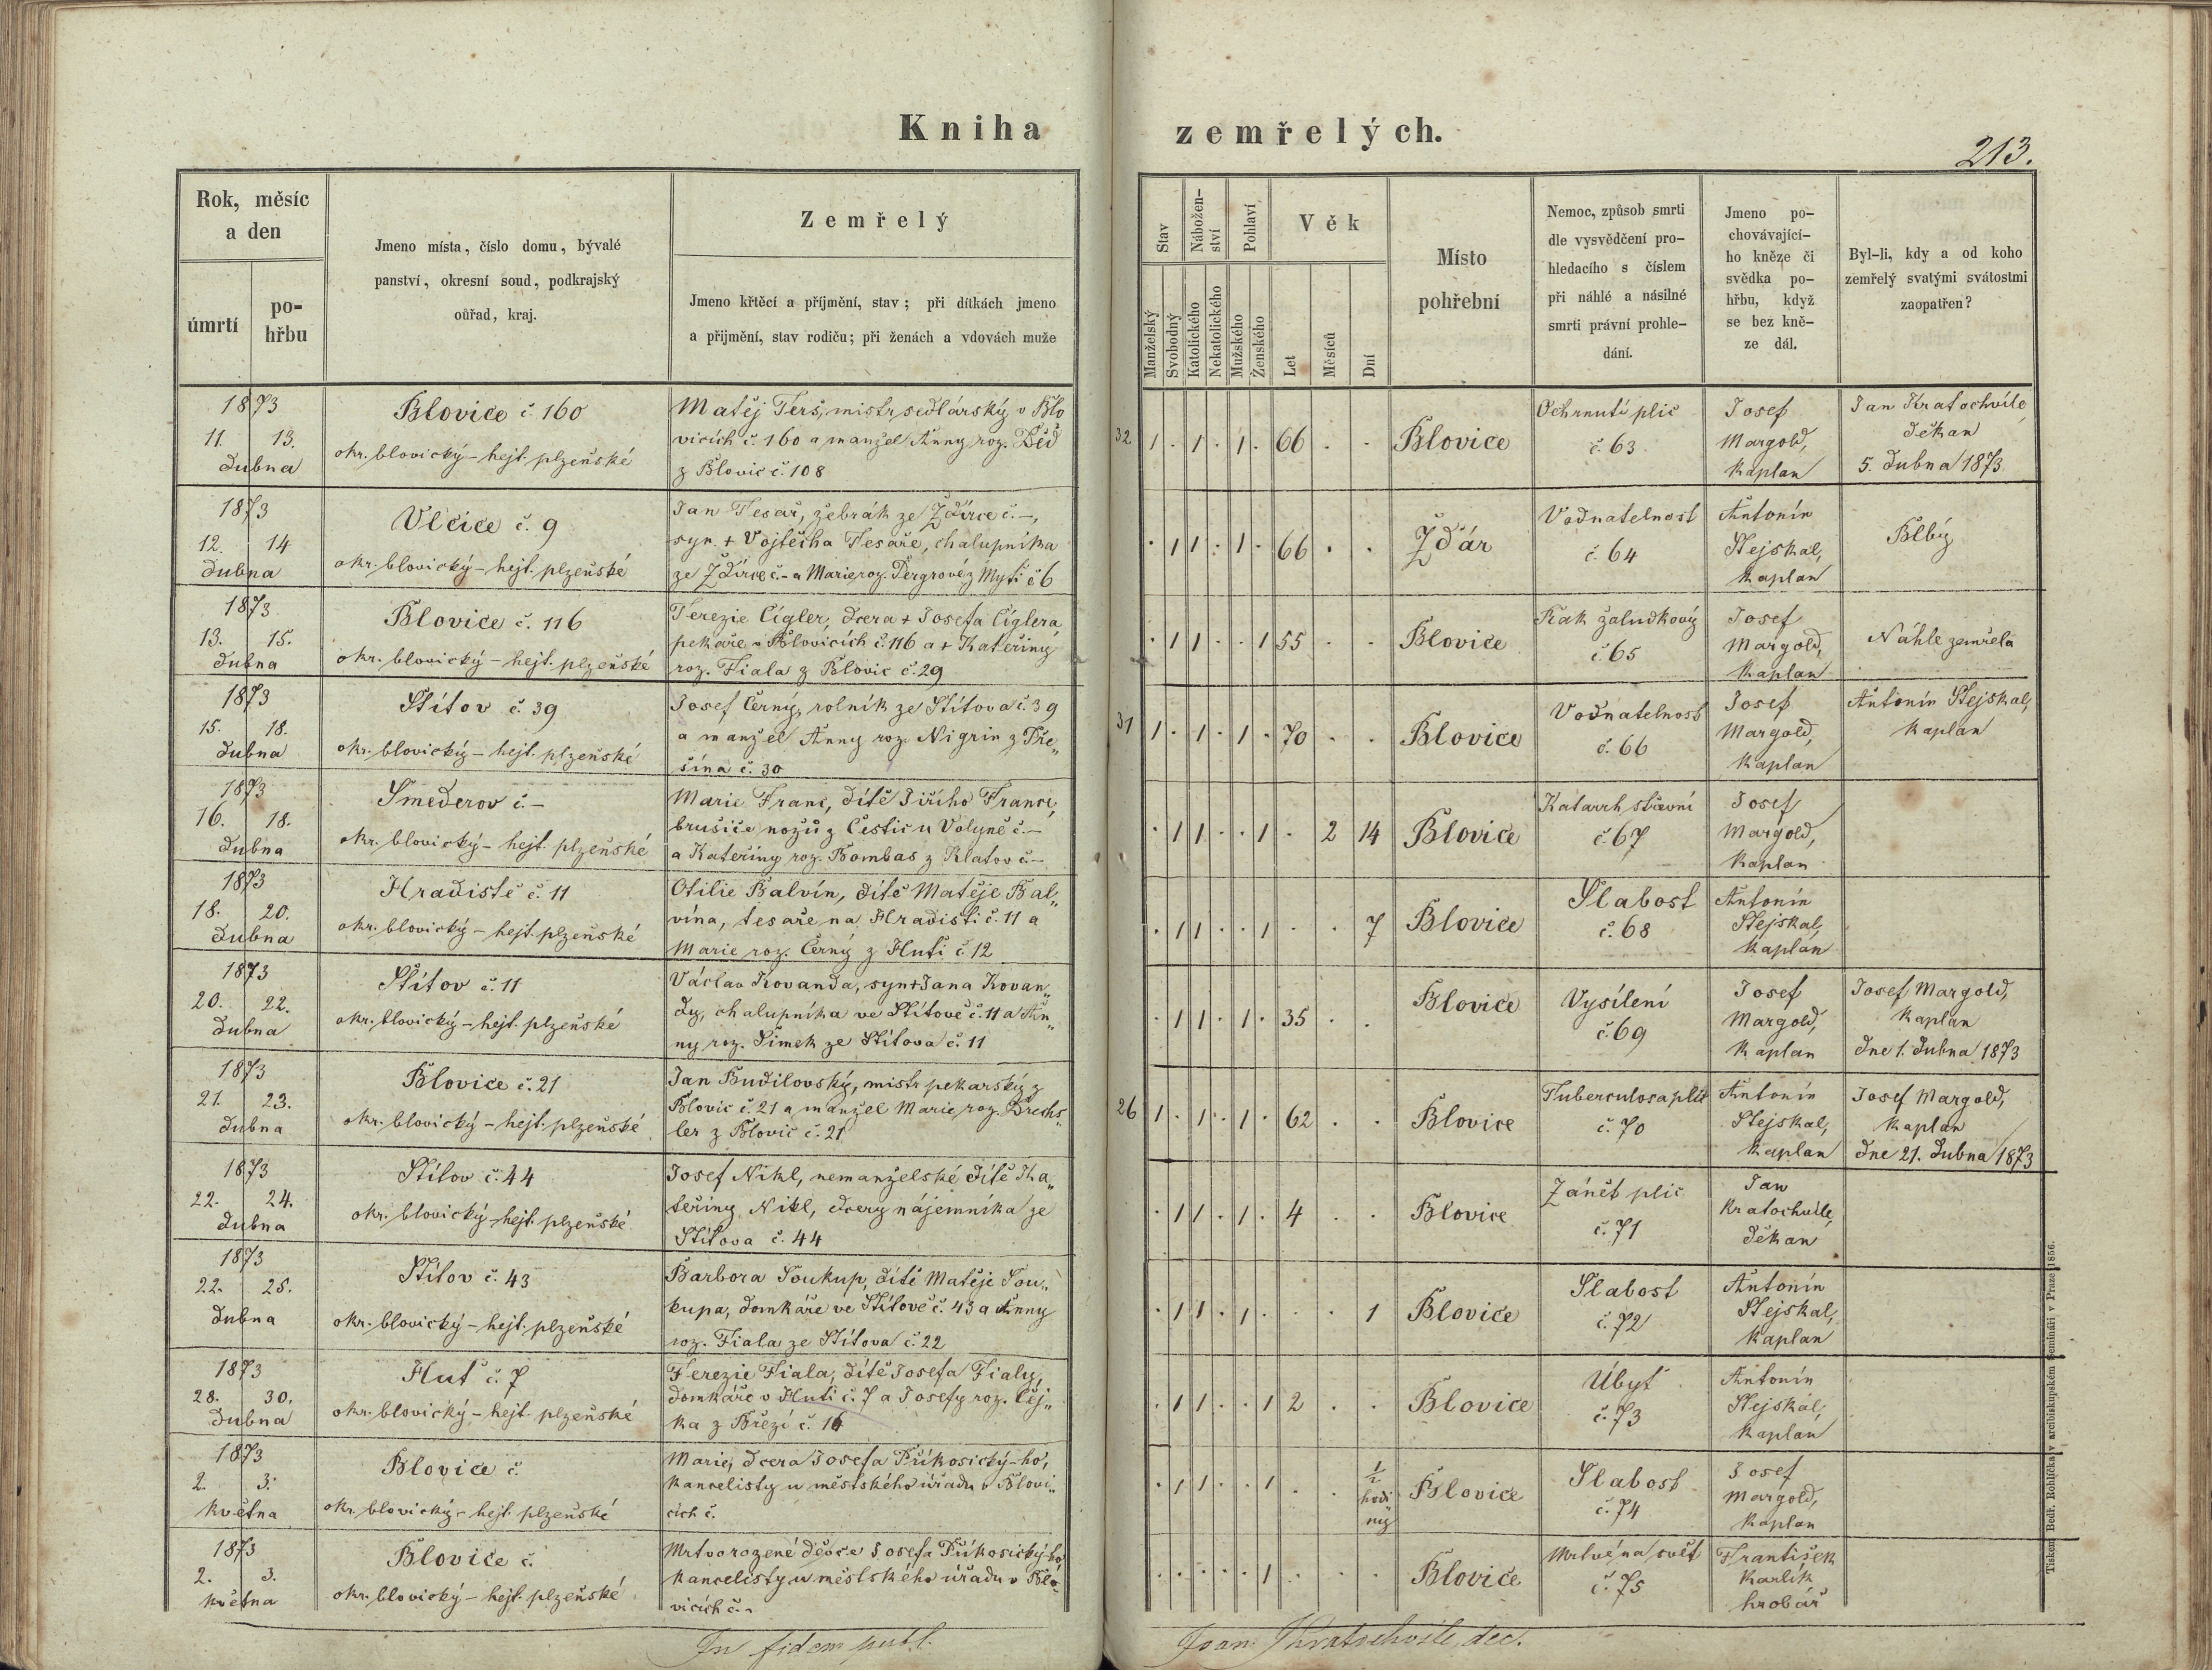 Kniha zemřelých.
213.
Rok, měsíc a den
úmrtí
pohřbu
Jmeno místa, číslo domu, bývalé panství, okresní soud, podkrajský oúřad, kraj.
Zemřelý
Jmeno křtěcí a příjmění, stav; při dítkách jmeno a přijmění, stav rodiču; při ženách a vdovách muže
Stav
Manželský
Svobodný
Nábožen-ství
Katolického
Nekatolického
Pohlaví
Mužského
Ženského
Věk
Let
Měsíců
Dní
Místo pohřební
Nemoc, způsob smrti dle vysvědčení pro-hledacího s číslem při náhlé a násilné smrti právní prohle-dání.
Jmeno po-chovávající-ho kněze či svědka po-hřbu, když se bez kně-ze dál.
Byl-li, kdy a od koho zemřelý svatými svátostmi zaopatřen?
1873
11. 13.
dubna
Blovice č. 160
okr. blovický – hejt. plzeňské
Matěj Terš, mistr sedlárský v Blo
vicích č. 160 a manžel Anny roz. Děd
z Blovic č. 108
32 1 . 1 . 1 . 66 . .
Blovice
Ochrnutí plic
č. 63
Josef
Margold,
kaplan
Jan Kratochvíle
děkan
5. dubna 1873
1873
12. 14
dubna
Vlčice č. 9
okr. blovický – hejt. plzeňské
Jan Tesař, žebrák ze Ždírce č. –,
syn + Vojtěcha Tesaře, chalupníka
ze Ždírce č. – a Marie roz. Pergrové z Mýti č 6
. 1 1 . 1 . 66 . .
Ždár
Vodnatelnost
č 64
Antonín
Stejskal,
kaplan
Blbý
1873
13. 15.
dubna
Blovice č. 116
okr. blovický – hejt. plzeňské
Terezie Cígler, dcera + Josefa Cíglera
pekaře v Blovicích č. 116 a + Kateřiny
roz. Fiala z Blovic č. 29
. 1 1 . . 1 55 . .
Blovice
Rak žaludkový
č. 65
Josef
Margold,
kaplan
Náhle zemřela
1873
15. 18.
dubna
Štítov č. 39
okr. blovický – hejt. plzeňské
Josef Černý, rolník ze Štítova č. 39
a manžel Anny roz. Nigrin z Tře„
šína č. 30
31 1 . 1 . 1 . 70 . .
Blovice
Vodnatelnost
č. 66
Josef
Margold,
kaplan
Antonín Stejskal,
kaplan
1873
16. 18.
dubna
Smederov č. –
okr. blovický – hejt. plzeňské
Marie Franc, dítě Jiřího Franc,
brusiče nožů z Čestic u Volyně č. –
a Kateřiny roz. Bombas z Klatov č. –
. 1 1 . . 1 . 2 14
Blovice
Katarrh střevní
č. 67
Josef
Margold,
kaplan
1873
18. 20.
dubna
Hradiště č. 11
okr. blovický – hejt. plzeňské
Otilie Balvín, dítě Matěje Bal„
vína, tesaře na Hradišti č. 11 a
Marie roz. Černý z Huti č. 12
. 1 1 . . 1 . . 7
Blovice
Slabost
č. 68
Antonín
Stejskal,
kaplan
1873
20. 22.
dubna
Štítov č. 11
okr. blovický – hejt. plzeňské
Václav Kovanda, syn + Jana Kovan„
dy, chalupníka ve Štítově č. 11 a An„
ny roz. Šimek ze Štítova č. 11
. 1 1 . 1 . 35 . .
Blovice
Vysílení
č. 69
Josef
Margold,
kaplan
Josef Margold,
kaplan
dne 1. dubna 1873
1873
21. 23.
dubna
Blovice č. 21
okr. blovický – hejt. plzeňské
Jan Budilovský, mistr pekarský z
Blovic č. 21 a manžel Marie roz. Drechs„
ler z Blovic č. 21
26 1 . 1 . 1 . 62 . .
Blovice
Tuberculosa plic
č. 70
Antonín
Stejskal,
kaplan
Josef Margold,
kaplan
dne 21. dubna 1873
1873
22. 24.
dubna
Štítov č. 44
okr. blovický – hejt. plzeňské
Josef Nikl, nemanželské dítě Ka„
teřiny Nikl, dcery nájemníka ze
Štítova č. 44
. 1 1 . 1 . 4 . .
Blovice
Zánět plic
č. 71
Jan
Kratochvile,
děkan
1873
22. 25.
dubna
Štítov č. 43
okr. blovický – hejt. plzeňské
Barbora Soukup, dítě Matěje Sou„
kupa, domkáře ve Štítově č. 43 a Anny
roz. Fiala ze Štítova č. 22
. 1 1 . 1 . . . 1
Blovice
Slabost
č. 72
Antonín
Stejskal,
kaplan
1873
28. 30.
dubna
Huť č. 7
okr. blovický – hejt. plzeňské
Terezie Fiala, dítě Josefa Fialy,
domkáře v Huti č. 7 a Josefy roz. Čej„
ka z Březí č. 16
. 1 1 . . 1 2 . .
Blovice
Úbyť
č. 73
Antonín
Stejskal,
kaplan
1873
2. 3.
května
Blovice č.
okr. blovický – hejt. plzeňské
Marie, dcera Josefa Příkosický-ho,
kancelisty u městského úřadu v Blovi„
cích č.
. 1 1 . . 1 . . ½ hodi„ny
Blovice
Slabost
č. 74
Josef
Margold,
kaplan
1873
2. 3.
května
Blovice č.
okr. blovický – hejt. plzeňské
Mrtvorozené děvče Josefa Příkosický-ho,
kancelisty u městského úřadu v Blo„
vicích č. –
. . . . . 1 . . .
Blovice
Mrtvé na svět
č. 75
František
Karlík
hrobář
In fidem publ.
Joan. Kratochvile, dec.
Tiskem Bedř. Rohlíčka v arcibiskupském Seminári v Praze 1856.